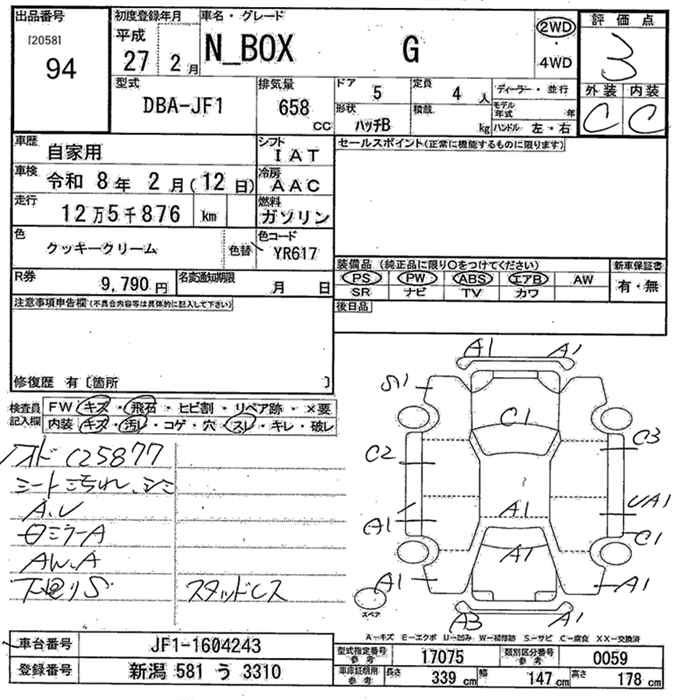 出品番号
[2058]
94
初度登録年月
平成
27 2月
車名・グレード
N_BOX G
2WD
・
4WD
評価点
3
外装 内装
C C
型式
DBA-JF1
排気量
658
CC
ドア
5
定員
4 人
形状
ハッチB
積載
kg
ディーラー・並行
モデル
年式 年
ハンドル 左・右
車歴
自家用
シフト
IAT
車検
令和 8年 2月(12日)
冷房
AAC
走行
12万5千876 km
燃料
ガソリン
色
クッキークリーム
色替
色コード
YR617
R券
9,790円
名変通知期限
月 日
セールスポイント(正常に機能するものに限ります)
装備品 (純正品に限り〇をつけてください)
PS PW ABS エアB AW
SR ナビ TV カワ
新車保証書
有・無
後日品
注意事項申告欄(不具合内容等は具体的に記入して下さい)
修復歴 有〔箇所 〕
検査員
記入欄
FW キズ・飛石・ヒビ割・リペア跡・×要
内装 キズ・汚レ・コゲ・穴・スレ・キレ・破レ
シート
A.U
ミラーA
AW.A
下廻りS
スタッドレス
A1 A1
S1
C1
C2
C3
A1
A1
UA1
C1
A1
A1
A1
スペア
A3 A1
A-キズ E-エクボ U-凹み W-補修跡 S-サビ C-腐食 XX-交換済
車台番号
JF1-1604243
登録番号
新潟 581 う 3310
型式指定番号
参考
17075
類別区分番号
参考
0059
車庫証明用
参考
長さ
339 cm
幅
147 cm
高さ
178 cm